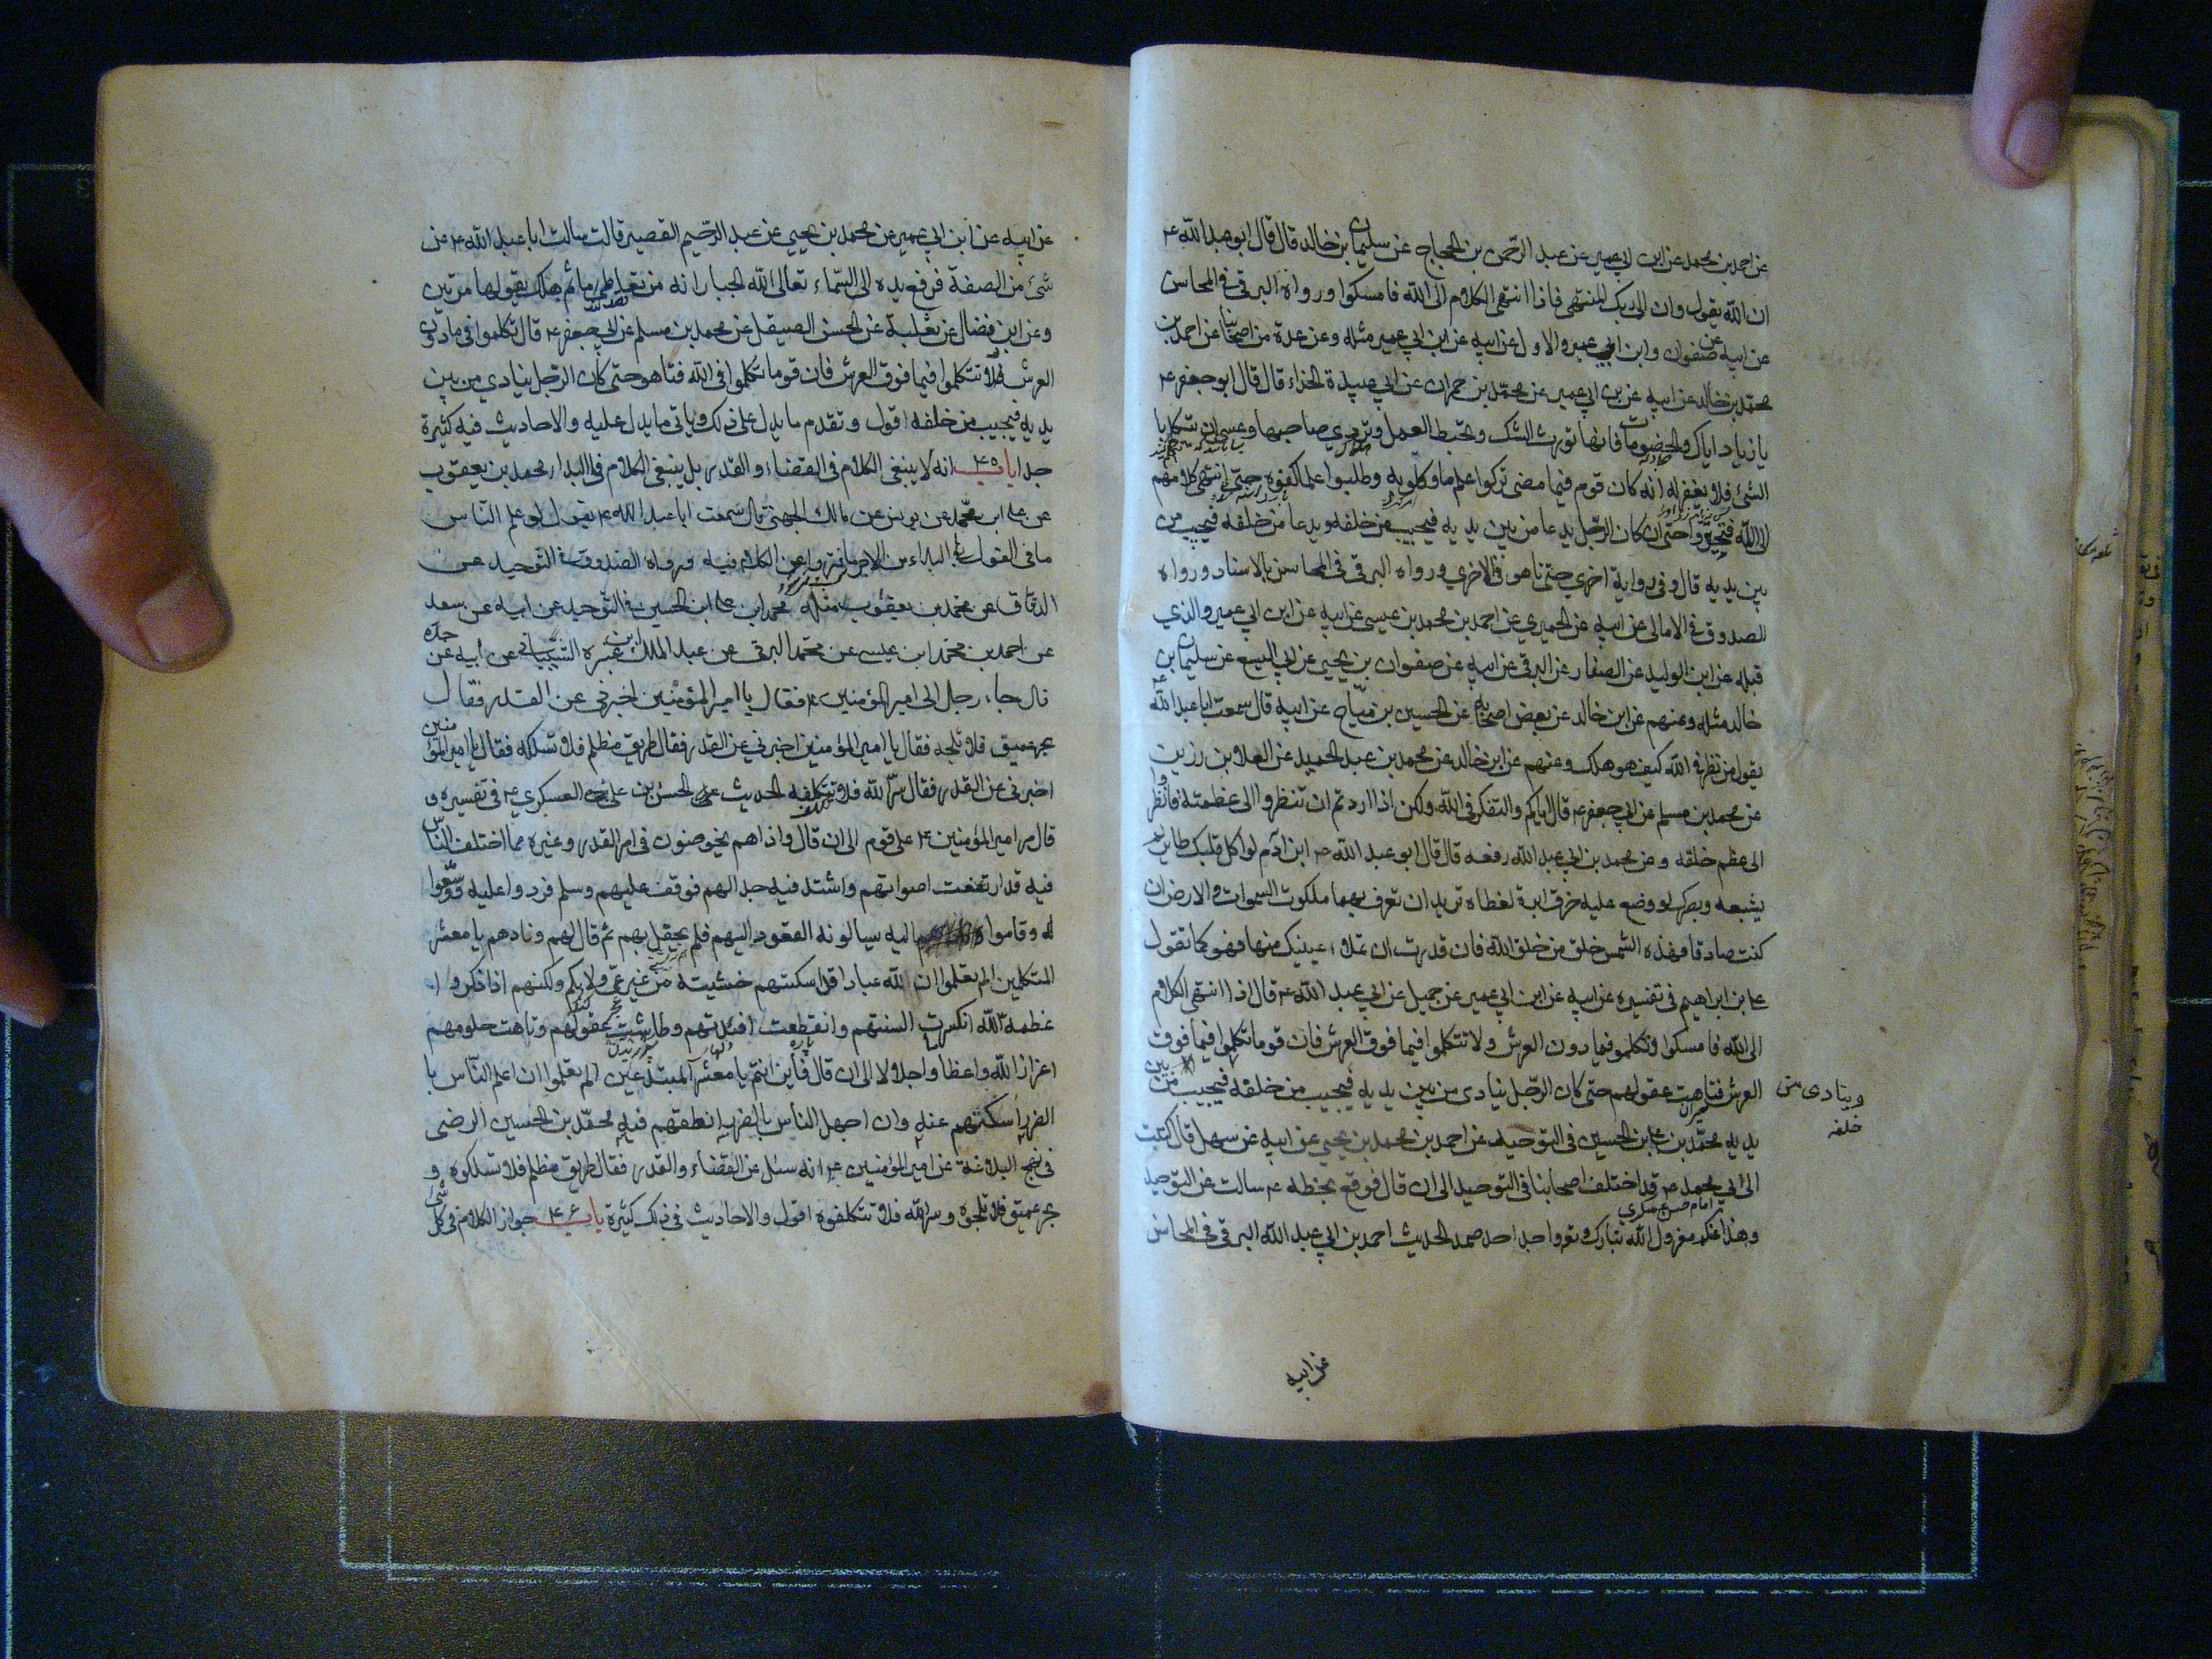 عن احمد بن محمد عن ابن ابي عمير عن عبد الرحمن بن الحجاج عن سليمان بن خالد قال قال ابو عبد الله ع
ان الله يقول وان الى ربك المنتهى فاذا انتهى الكلام الى الله فامسكوا ورواه البرقي في المحاسن
عن ابيه عن صفوان وابن ابي عمير والاول عن ابيه عن ابن ابي عمير مثله وعن عدة من اصحابنا عن احمد بن
محمد بن خالد عن ابيه عن بن ابي عمير عن محمد بن حمران عن ابي عبيدة الحذاء قال قال ابو جعفر ع
يا زياد اياك والخصومات فانها تورث الشك وتحبط العمل وتردي صاحبها وعسى ان يتكلم با
الشئ فلا يغفر له انه كان قوم فيما مضى تركوا علم ما وكلوا به وطلبوا علم ما كفوه حتى انتهى كلامهم
الى الله فتحيروا حتى ان كان الرجل يدعا من بين يديه فيجيب من خلفه ويدعا من خلفه فيجيب من
بين يديه قال وفي رواية اخرى حتى تاهوا في الارض ورواه البرقي في المحاسن بالاسناد ورواه
الصدوق في الامالى عن ابيه عن الحميري عن احمد بن محمد بن عيسى عن ابيه عن ابن ابي عمير والذي
قبله عن ابن الوليد عن الصفار عن البرقي عن ابيه عن صفوان بن يحيى عن ابي اليسع عن سليمان بن
خالد مثله وعنهم عن ابن خالد عن بعض اصحابه عن الحسين بن مياح عن ابيه قال سمعت ابا عبد الله ع
يقول من نظر في الله كيف هو هلك وعنهم عن ابن خالد عن محمد بن عبد الحميد عن العلا بن رزين
عن محمد بن مسلم عن ابي جعفر ع قال اياكم والتفكر في الله ولكن اذا اردتم ان تنظروا الى عظمته فانظروا
الى عظم خلقه وعن محمد بن ابي عبد الله رفعه قال قال ابو عبد الله ع ابن آدم لو اكل قلبك طاير لم
يشبعه وبصرك لو وضع عليه خرق ابرة لغطاه تريد ان تعرف بهما ملكوت السموات والارض ان
كنت صادقا فهذه الشمس خلق من خلق الله فان قدرت ان تملا عينيك منها فهو كما تقول
على بن ابراهيم في تفسيره عن ابيه عن ابن ابي عمير عن جميل عن ابي عبد الله ع قال اذا انتهى الكلام
الى الله فامسكوا وتكلموا فيما دون العرش ولا تتكلموا فيما فوق العرش فان قوما تكلموا فيما فوق
العرش فتاهت عقولهم حتى كان الرجل ينادى من بين يديه فيجيب من خلفه فيجيب من بين
وينادى من
خلفه
يديه محمد بن على بن الحسين في التوحيد عن احمد بن محمد بن يحيى عن ابيه عن سهل قال كتبت
الى ابي محمد ع قد اختلف اصحابنا في التوحيد الى ان قال فوقع بخطه ع سالت عن التوحيد
امام حسن عسكري
وهذا عنكم معزول الله تبارك وتع واحد احد صمد الحديث احمد بن ابي عبد الله البرقي في المحاسن
عن ابيه
عن ابيه عن ابن ابي عمير عن محمد بن يحيى عن عبد الرحيم القصير قالت سالت ابا عبد الله ع عن
شئ من الصفة فرفع يده الى السماء تعالى الله الجبار انه من تعاطى ما ثم هلك يقولها مرتين
وعن ابن فضال عن ثعلبة عن الحسن الصيقل عن محمد بن مسلم عن ابي جعفر ع قال تكلموا في ما دون
العرش ولا تتكلموا فيما فوق العرش فان قوما تكلموا في الله فتاهوا حتى كان الرجل ينادي من بين
يديه فيجيب من خلفه اقول وتقدم ما يدل على ذلك وياتى ما يدل عليه والاحاديث فيه كثيرة
جدا باب ۴۵ انه لا ينبغى الكلام في القضاء والقدر بل ينبغى الكلام في البدا محمد بن يعقوب
عن على ابن محمد عن يونس عن مالك الجهني قال سمعت ابا عبد الله ع يقول لو علم الناس
ما في القول في البداء من الاجر ما فتروا عن الكلام فيه ورواه الصدوق في التوحيد عن
الدقاق عن محمد بن يعقوب مثله محمد ابن على ابن الحسين في التوحيد عن ابيه عن سعد
عن احمد بن محمد ابن عيسى عن محمد البرقى عن عبد الملك ابن عنتره الشيباني عن ابيه عن جده
قال جاء رجل الى امير المؤمنين ع فقال يا امير المؤمنين اخبرني عن القدر فقال
بحر عميق فلا تلجه فقال يا امير المؤمنين اخبرني عن القدر فقال طريق مظلم فلا تسلكه فقال يا امير المؤمنين
اخبرنى عن القدر فقال سر الله فلا تتكلفه الحديث عن الحسن بن على العسكري ع في تفسيره و
قال مر امير المؤمنين ع على قوم الى ان قال واذا هم يخوضون في امر القدر وغيره مما اختلف الناس
فيه قد ارتفعت اصواتهم واشتد فيه جدالهم فوقف عليهم وسلم فردوا عليه ووسعوا
له وقاموا اليه سيالونه القعود اليهم فلم يحفل بهم ثم قال لهم ونادهم يا معشر
المتكلمين الم تعلموا ان لله عبادا قد اسكتهم خشيته من غير عى ولا بكم ولكنهم اذا ذكروا
عظمة الله انكسرت السنتهم وانقطعت افئدتهم وطاشت عقولهم وتاهت حلومهم
اعزازا لله واعظاما واجلالا الى ان قال فاين انتم يا معشر المبتدعين الم تعلموا ان اعلم الناس با
الضرر اسكتهم عنه وان اجهل الناس بالضرر انطقهم فيه محمد بن الحسين الرضى
في نهج البلاغة عن امير المؤمنين ع انه سئل عن القضاء والقدر فقال طريق مظلم فلا تسلكوه و
بحر عميق فلا تلجوه وسر الله فلا تتكلفوه اقول والاحاديث في ذلك كثيرة باب ۴۶ جواز الكلام في كل شئ